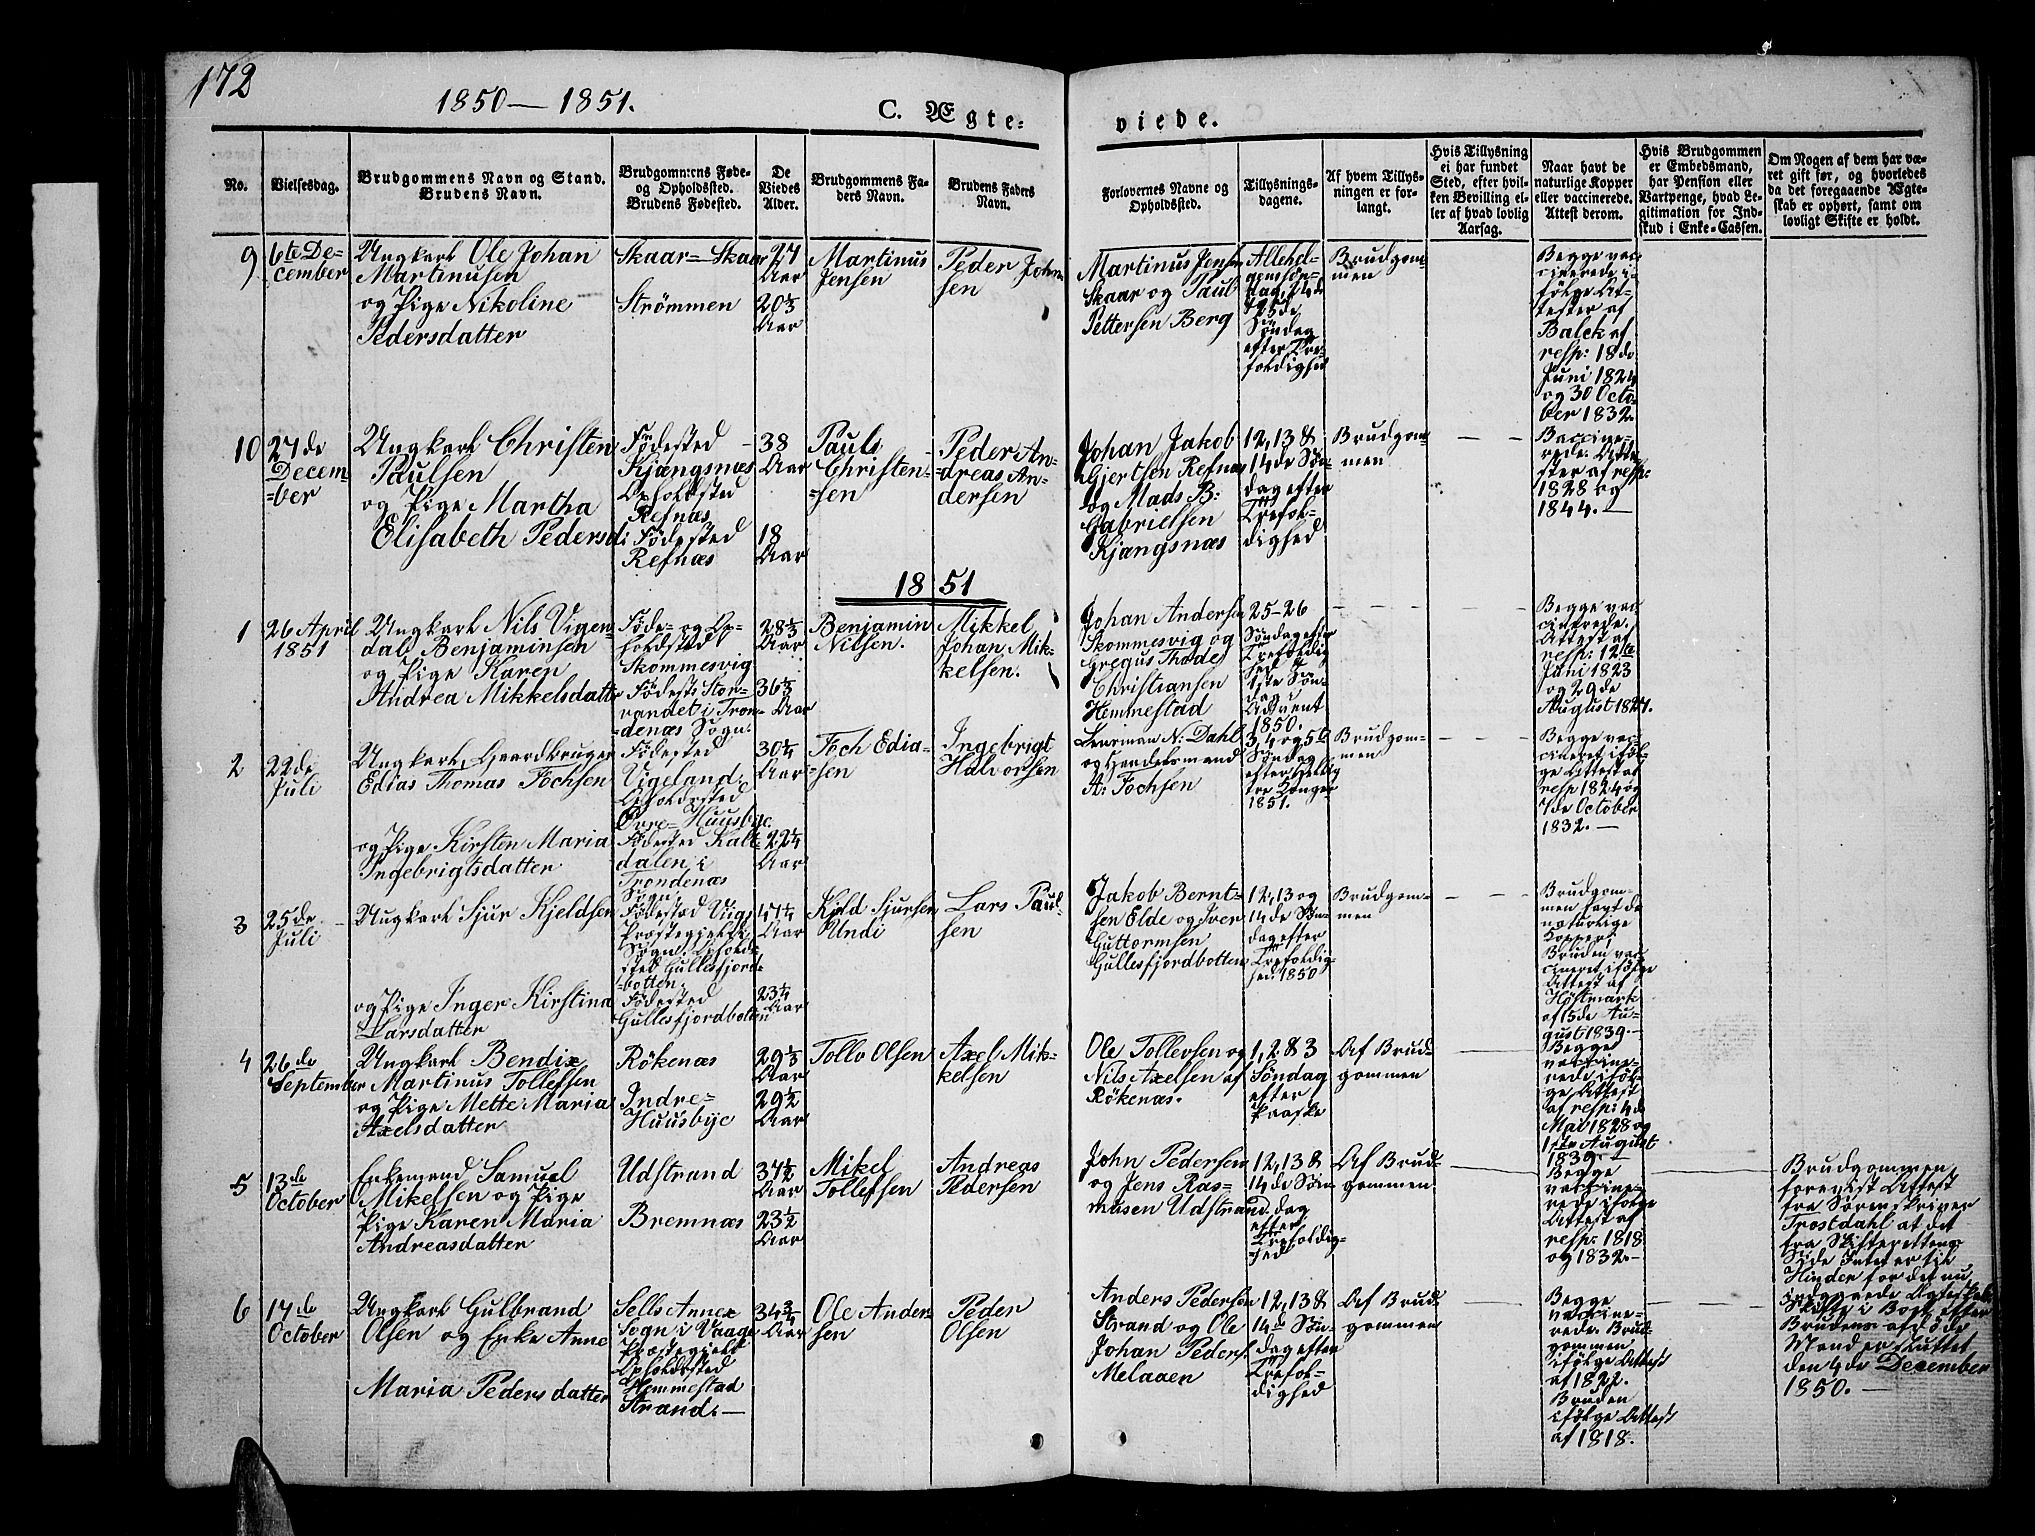 172
1850–1851.
C. Ægte-
viede.
No.
Vielsesdag.
Brudgommens Navn og Stand.
Brudens Navn.
Brudgommens Føde-
og Opholdssted.
Brudens Fødested.
De
Viedes
Alder.
Brudgommens Fa-
ders Navn.
Brudens Faders
Navn.
Forlovernes Navne og
Opholdssted.
Tillysnings-
dagene.
Af hvem Tillys-
ningen er for-
langt.
Hvis Tillysning
ei har fundet
Sted, efter hvil-
ken Bevilling el-
ler af hvad lovlig
Aarsag.
Naar havt de
naturlige Kopper
eller vaccinerede.
Attest derom.
Hvis Brudgommen
er Embedsmand,
har Pension eller
Vartpenge, hvad Le-
gitimation for Ind-
skud i Enke-Cassen.
Om Nogen af dem har væ-
ret gift før, og hvorledes
da det foregaaende Ægte-
skab er ophørt, samt om
lovligt Skifte er holdt.
9
6te De-
cember
Ungkarl Ole Johan
Martinusen
og Pige Nikoline
Pedersdatter
Skaar – Skaar
Strömmen
27
Aar
20 1/3
Aar
Martinus
Jensen
Peder John-
sen
Martinus Jensen
Skaar og Paul
Pettersen Berg
Söndag
efter Tre-
foldighed
Brudgom-
men
Begge vac-
cinerede i-
følge At-
tester af
Balck af
resp: 18de
Juni 1824
og 30 Octo-
ber 1832.
10
27de
Decem-
-ber
Ungkarl Christen
Paulsen
og Pige Martha
Elisabeth Pedersd:
Fødested
Kjængsnæs
Opholdsted
Refnæs
Fødested
Refnæs
38
Aar
18
Aar
Paul
Christen-
-sen
Peder An-
dreas An-
dersen
Johan Jakob
Gjertsen Refnæs
og Mads B:
Gabrielsen
Kjængsnæs
12, 13 &
14de Søn-
dag efter
Trefol-
dighed
Brudgom-
men
Vaccine-
rede. Atte-
ster af resp:
1828 og
1844. –
1851
1
26 April
1851
Ungkarl Nils Vigen-
dal Benjaminsen
og Pige Karen
Andrea Mikkelsdatter
Føde- og Op-
holdsted
Skommesvig
Fødest: Stor-
vandet i Tron-
denæs Sogn.
28 1/3
Aar
36 1/3
Aar
Benjamin
Nilsen.
Mikkel
Johan Mik-
kelsen.
Johan Andersen
Skommesvig og
Gregus Thode
Christiansen
Hemmestad
25–26
Söndag efter
Trefoldig-
hed
1ste Søn-
dag i
Advent
1850.
Begge vac-
cinerede.
Attest af
resp: 12te
Juni 1823
og 29de
August 1827.
2
22de
Juli
Ungkarl, Gaardbruger
Edias Thomas Fochsen
og Pige Kirsten Maria
Ingebrigtsdatter
Fødested
Vigeland.
Opholdested
Øvre-Huusbye.
Fødested Kalt-
dalen i
Trondenæs
Sogn.
30 1/4
Aar
22 1/4
Aar
Foch Edia-
-sen
Ingebrigt
Halvorsen
Lensmand N: Dahl
og Handelsmand
A: Fochsen
3, 4 og 5te
Söndag
efter Hellig
tre Konger
1851.
Brudgom-
men
Begge vac-
cineret iføl-
ge Attest af
resp 1824 og
7de October
1832. –
3
25de
Juli
Ungkarl Sjur Kjeldsen
og Pige Inger Kirstina
Larsdatter
Præstegjeld i
Sogn. Ophold-
sted Gullesfjord-
-botten.
Fødested
Gullesfjordbotten
47 1/4
Aar
23 1/4
Aar
Kjeld Sjursen
Undi
Lars Paul-
sen
Jakob Bernt-
sen Elde og Iver
Guttormsen
Gullesfjordbotten
12, 13 og
14de Søn-
dag efter
Trefoldig-
hed 1850
Brudgom-
men
Brudgom-
men havt de
naturlige
Kopper;
Bruden vac-
cineret ifølge
Attest af
Høstmark
af 15de Au-
gust 1839. –
4
26de
September
Ungkarl Bendix
Martinus Tollefsen
og Pige Mette Maria
Axelsdatter
Rökenæs
Indre-
Huusbye
29 1/3
Aar
29 1/2
Aar
Tollev Olsen
Axel Mik-
kelsen
Ole Tollevsen og
Nils Axelsen af
Rökenæs.
1, 2 & 3
Söndag
efter
Paaske
Af Brud-
gommen
Begge
vaccine-
rede iføl-
ge Attest
af resp: 4de
Mai 1828 og
1ste August
1839.
5
13de
October
Enkemand Samuel
Mikelsen og Pige
Pige Karen Maria
Andreasdatter
Udstrand
Bremnæs
37 1/2
Aar
23 1/2
Aar
Mikel
Tollefsen
Andreas
Pedersen
John Pedersen
og Jens Ras-
musen Udstrand
12, 13 &
14de Søn-
dag
efter
Trefoldig-
hed
Af Brud-
gommen
Begge
vaccine-
rede ifølge
Attest af
resp: 1818
og 1832. –
Brudgommen
forevist Attest
fra Sörenskriver
Trostdahl at det
fra Skifterettens
Side Intet er til
Hinder for det nu
indgaaede Ægteskab.
Skifte i Boet efter
Brudens afdøde
Mand er sluttet
den 4de December
1850. –
6
17de
October
Ungkarl Gulbrand
Olsen og Enke Anne
Maria Pedersdatter
Sells Annex
Sogn i Vaage
Præstegjeld
Opholdssted
Hemmestad
Strand. –
34 3/4
Aar
Ole Ander-
sen
Peder
Olsen
Anders Pedersen
Strand og Ole
Johan Peders.
Melaaen
12, 13 &
14de Søn-
dag efter
Trefol-
dighed
Af Brud-
gommen
Begge
vaccine-
rede. Brud-
gommen
ifølge Attest
af 1822.
Bruden
ifølge Attest
af 1818.